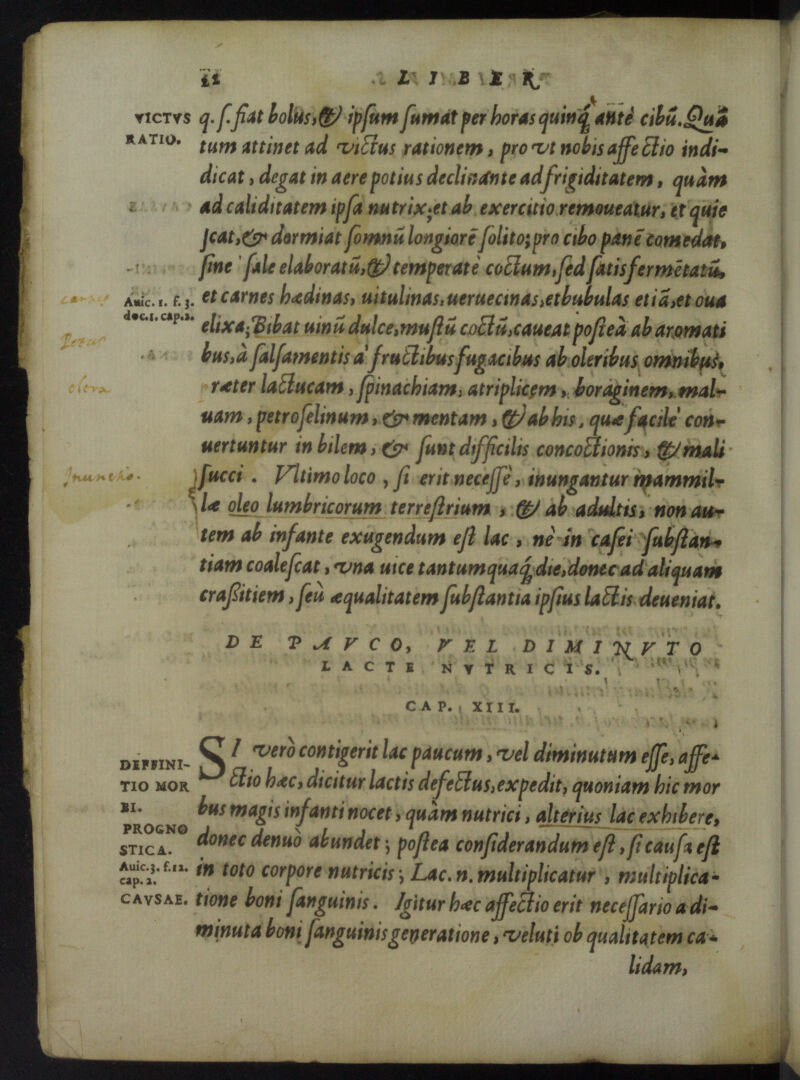 22 LIBER
VICTVS q. s. fiat bolus, & ipsum sumat per horas quinq; ante cibū. Quā
RATIO. tum attinet ad victus rationem, pro vt nobis affectio indi-
dicat, degat in aere potius declinante ad frigiditatem, quàm
ad caliditatem ipsa nutrix; et ab exercitio remoueatur, et quie
scat, & dormiat somnū longiorē solito; pro cibo panē comedat,
sine sale elaboratū, & temperatè coctum, sed satis fermētatū,
Auic. 1. f. 3. et carnes hædinas, uitulinas, ueruecinas, et bubulas etiā, et oua
doc. 1. cap. 2. elixa; Bibat uinū dulce, mustū coctū, caueat posteà ab aromati
bus, à salsamentis a' fructibus fugacibus ab oleribus omnibus,
ræter lactucam, spinachiam, atriplicem, boraginem, mal-
olera
uam, petroselinum, & mentam, & ab his, quæ facilè con-
uertuntur in bilem, & sunt difficilis concoctionis, & mali
succi. Vltimo loco, si erit necessè, inungantur mammil-
læ oleo lumbricorum terrestrium, & ab adultis, non au-
tem ab infante exugendum est lac, nè in casei substan-
tiam coalescat, vna uice tantum quaq; die, donec ad aliquam
crassitiem, seù æqualitatem substantia ipsius lactis deueniat.
DE PAVCO, VEL DIMINVTO
LACTE NVTRICIS.
CAP. XIII.
SI verò contigerit lac paucum, vel diminutum esse, affe-
DIFFINI-
TIO MOR ctio hæc, dicitur lactis defectus, expedit, quoniam hic mor
BI. bus magis infanti nocet, quàm nutrici, alterius lac exhibere,
PROGNO
STICA. donec denuò abundet; postea considerandum est, si causa est
Auic. 3. f. 12.
cap. 2. in toto corpore nutricis; Lac. n. multiplicatur, multiplica-
CAVSAE. tione boni sanguinis. Igitur hæc affectio erit necessario a di-
minuta boni sanguinis generatione, veluti ob qualitatem ca-
lidam,